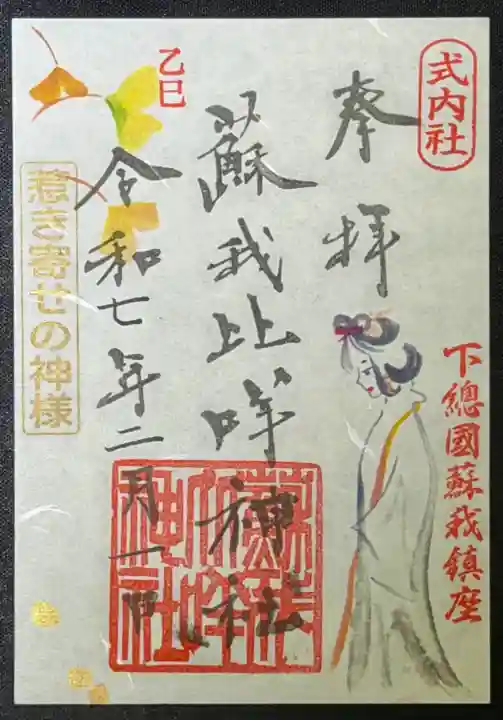 式内社
下總國蘇我鎮座
奉拝
蘇我比咩神社
乙巳
令和七年二月一日
惹き寄せの神様